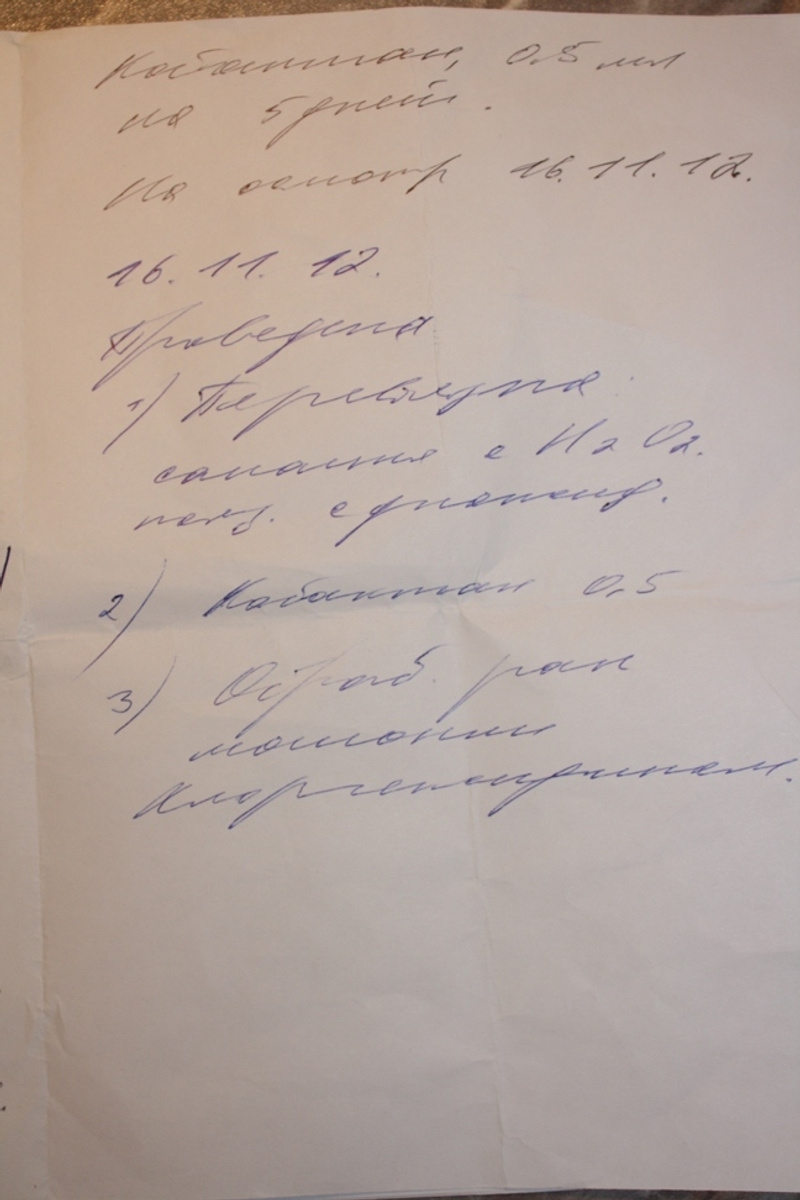 Кобактан, 0.5 мл
на 5 дней.
На осмотр 16.11.12.
16.11.12.
Проведена
1) Перевязка
санация с H2O2.
2) Кобактан 0.5
3) Обраб. ран
мошонки
Хлоргексидином.